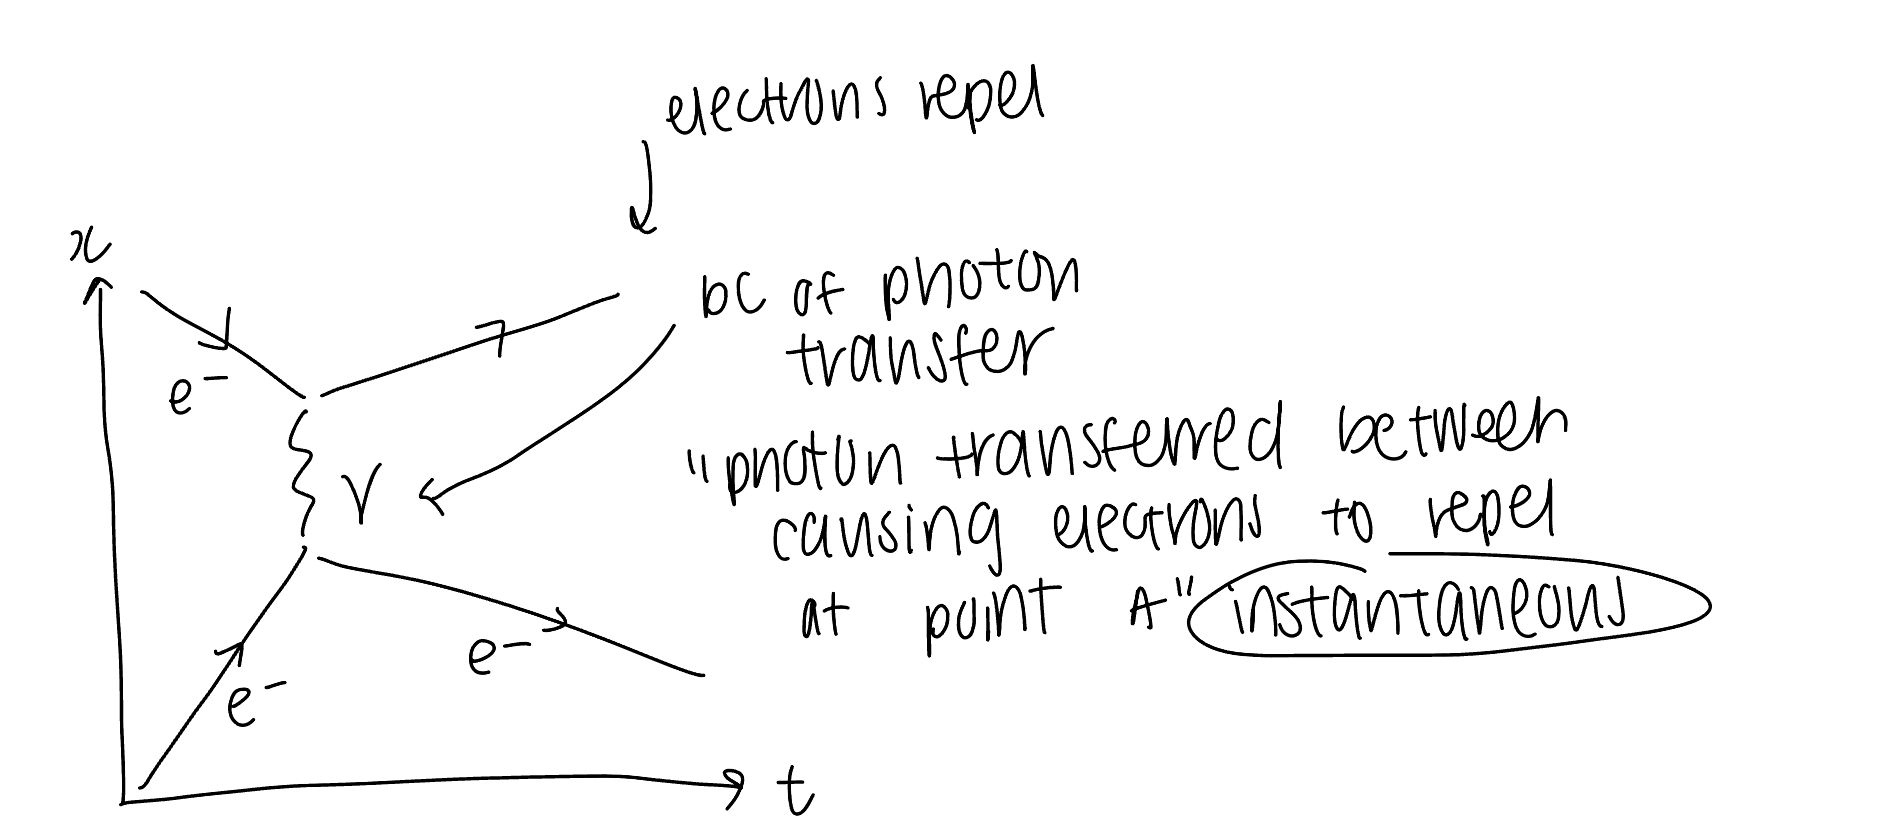 electrons repel
x
bc of photon
transfer
e-
γ
"photon transferred between
causing electrons to repel
at point A" instantaneous
e-
e-
t